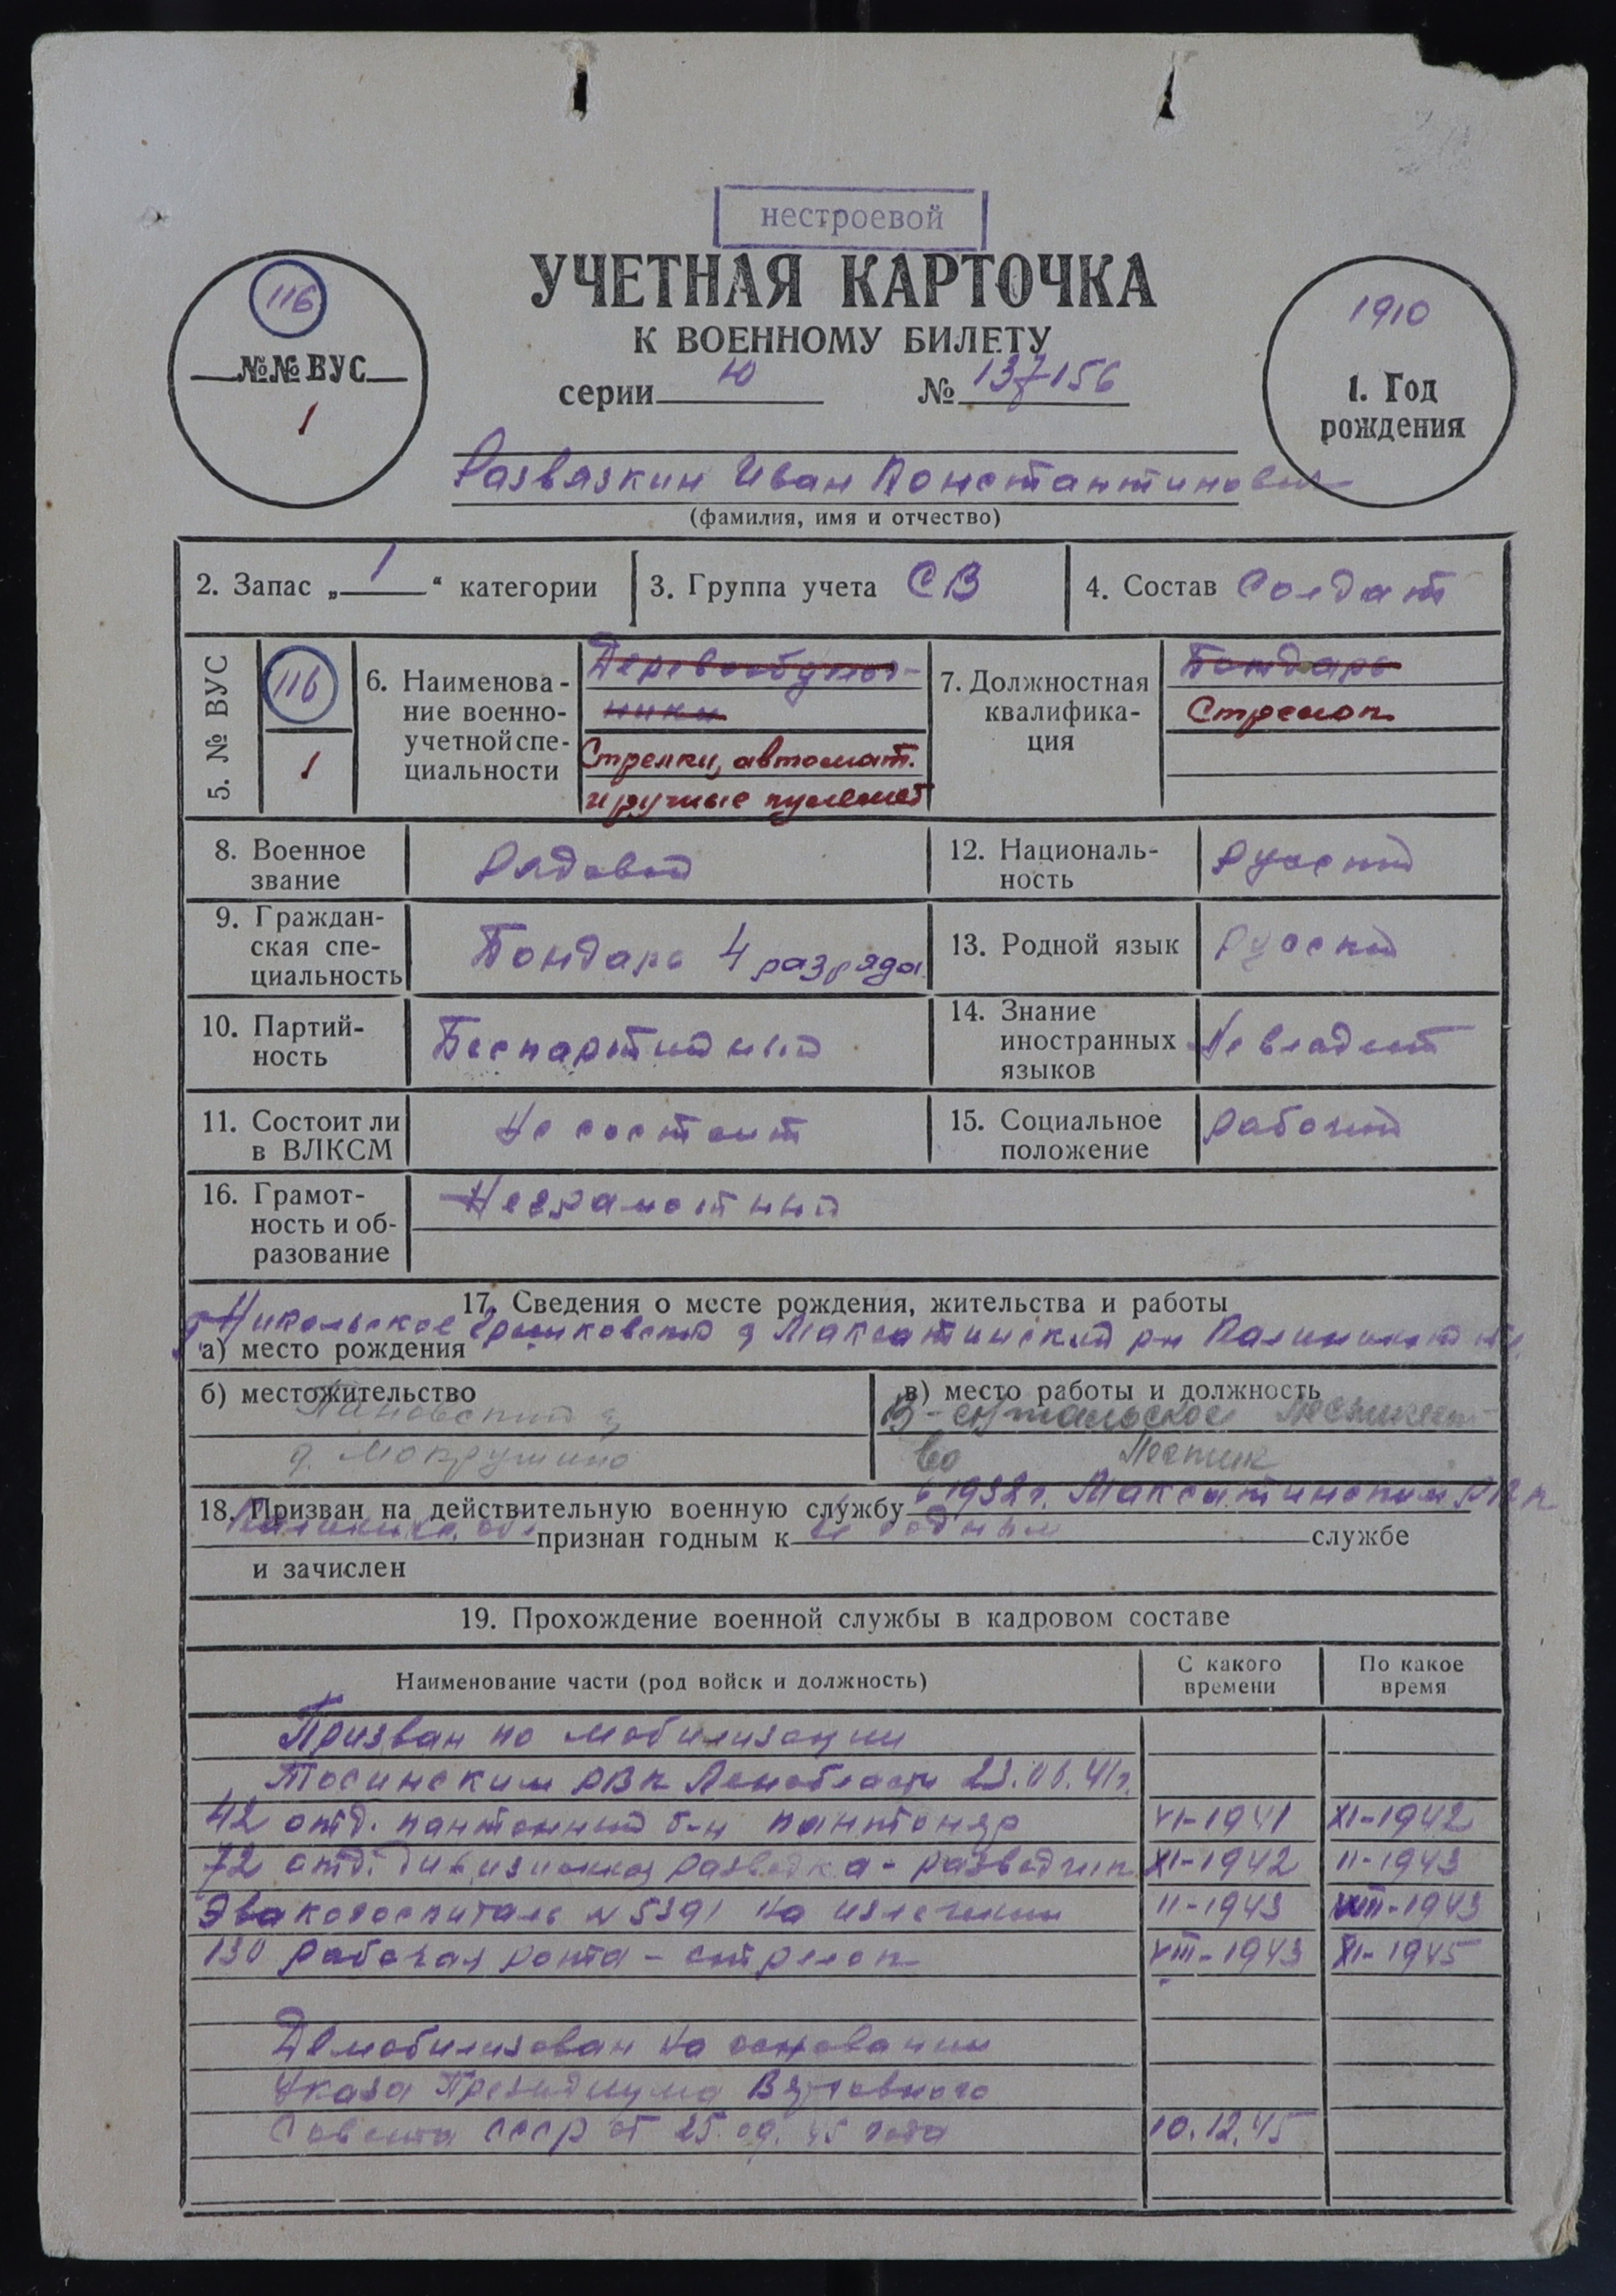 нестроевой
116
№№ ВУС
1
УЧЕТНАЯ КАРТОЧКА
К ВОЕННОМУ БИЛЕТУ
серии Ю № 137156
1910
1. Год
рождения
Развязкин Иван Константинович
(фамилия, имя и отчество)
2. Запас „ 1 “ категории
3. Группа учета СВ
4. Состав Солдат
5. № ВУС
116
1
6. Наименова-
ние военно-
учетной спе-
циальности
Деревообделоч-
ники
Стрелки, автомат.
и ручные пулемет
7. Должностная
квалифика-
ция
Бондарь
Стрелок
8. Военное
звание
Рядовой
12. Националь-
ность
Русский
9. Граждан-
ская спе-
циальность
Бондарь 4 разряда
13. Родной язык
Русский
10. Партий-
ность
Беспартийный
14. Знание
иностранных
языков
Не владеет
11. Состоит ли
в ВЛКСМ
Не состоит
15. Социальное
положение
Рабочий
16. Грамот-
ность и об-
разование
Неграмотный
17. Сведения о месте рождения, жительства и работы
д Никольское Максатинский рн
а) место рождения
б) местожительство
д. Мокрушино
в) место работы и должность
Лесник
18. Призван на действительную военную службу в 1932 г. Максатинским РВК
признан годным к Не годным службе
и зачислен
19. Прохождение военной службы в кадровом составе
Наименование части (род войск и должность)
С какого
времени
По какое
время
Призван по мобилизации
Тосинским РВК Ленобласти 23.06.41г.
42 отд. пантонный б-н пантонер VI-1941 XI-1942
72 отд. дивизионная разведка - разведчик XI-1942 II-1943
Эвакогоспиталь N 5391 На излечении II-1943 VIII-1943
130 рабочая рота - стрелок VIII-1943 XI-1945
Демобилизован на основании
Указа Президиума Верховного
Совета СССР от 25.09.45 года 10.12.45